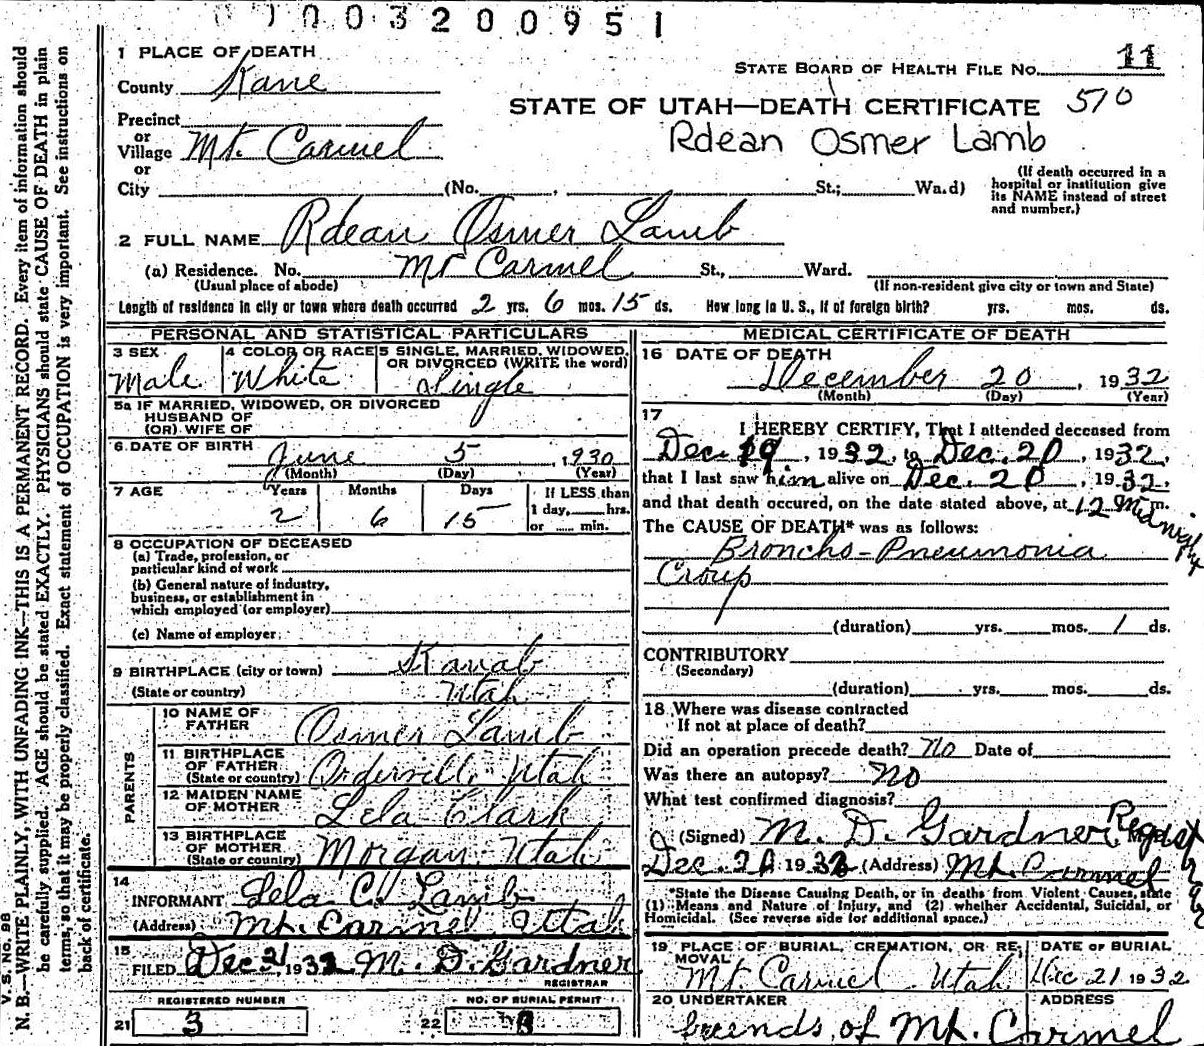 003200951
11
STATE BOARD OF HEALTH FILE NO.
STATE OF UTAH—DEATH CERTIFICATE 570
Rdean Osmer Lamb
1 PLACE OF DEATH
County Kane
Precinct
or
Village Mt. Carmel
or
City (No. , St.; Ward)
(If death occurred in a
hospital or institution give
its NAME instead of street
and number.)
2 FULL NAME Rdean Osmer Lamb
(a) Residence. No. Mt Carmel St., Ward.
(Usual place of abode) (If non-resident give city or town and State)
Length of residence in city or town where death occurred 2 yrs. 6 mos. 15 ds. How long in U. S., if of foreign birth? yrs. mos. ds.
PERSONAL AND STATISTICAL PARTICULARS
3 SEX 4 COLOR OR RACE 5 SINGLE, MARRIED, WIDOWED,
OR DIVORCED (WRITE the word)
Male White Single
5a IF MARRIED, WIDOWED, OR DIVORCED
HUSBAND OF
(OR) WIFE OF
6 DATE OF BIRTH June 5, 1930
(Month) (Day) (Year)
7 AGE Years Months Days If LESS than
1 day, hrs.
or min.
2 6 15
8 OCCUPATION OF DECEASED
(a) Trade, profession, or
particular kind of work
(b) General nature of industry,
business, or establishment in
which employed (or employer)
(c) Name of employer
9 BIRTHPLACE (city or town) Kanab
(State or country) Utah
PARENTS
10 NAME OF
FATHER Osmer Lamb
11 BIRTHPLACE
OF FATHER
(State or country) Orderville Utah
12 MAIDEN NAME
OF MOTHER Lela Clark
13 BIRTHPLACE
OF MOTHER
(State or country) Morgan Utah
14
INFORMANT Lela C. Lamb
(Address) Mt. Carmel Utah
15
FILED Dec 21, 1932 M. D. Gardner
REGISTRAR
REGISTERED NUMBER NO. OF BURIAL PERMIT
21 3 22
MEDICAL CERTIFICATE OF DEATH
16 DATE OF DEATH
December 20, 1932
(Month) (Day) (Year)
17
I HEREBY CERTIFY, That I attended deceased from
Dec. 19, 1932, to Dec. 20, 1932,
that I last saw him alive on Dec. 20, 1932,
and that death occured, on the date stated above, at 12 Midnight m.
The CAUSE OF DEATH* was as follows:
Broncho-Pneumonia
Croup
(duration) yrs. mos. 1 ds.
CONTRIBUTORY
(Secondary)
(duration) yrs. mos. ds.
18 Where was disease contracted
If not at place of death?
Did an operation precede death? No Date of
Was there an autopsy? No
What test confirmed diagnosis?
(Signed) M. D. Gardner
Dec. 20 1932 (Address) Mt. Carmel
*State the Disease Causing Death, or in deaths from Violent Causes, state
(1) Means and Nature of Injury, and (2) whether Accidental, Suicidal, or
Homicidal. (See reverse side for additional space.)
19 PLACE OF BURIAL, CREMATION, OR RE-
MOVAL
DATE OF BURIAL
Mt Carmel Utah Dec 21 1932
20 UNDERTAKER ADDRESS
friends of Mt. Carmel
V. S. No. 98
N. B.—WRITE PLAINLY, WITH UNFADING INK—THIS IS A PERMANENT RECORD. Every item of information should
be carefully supplied. AGE should be stated EXACTLY. PHYSICIANS should state CAUSE OF DEATH in plain
terms, so that it may be properly classified. Exact statement of OCCUPATION is very important. See instructions on
back of certificate.